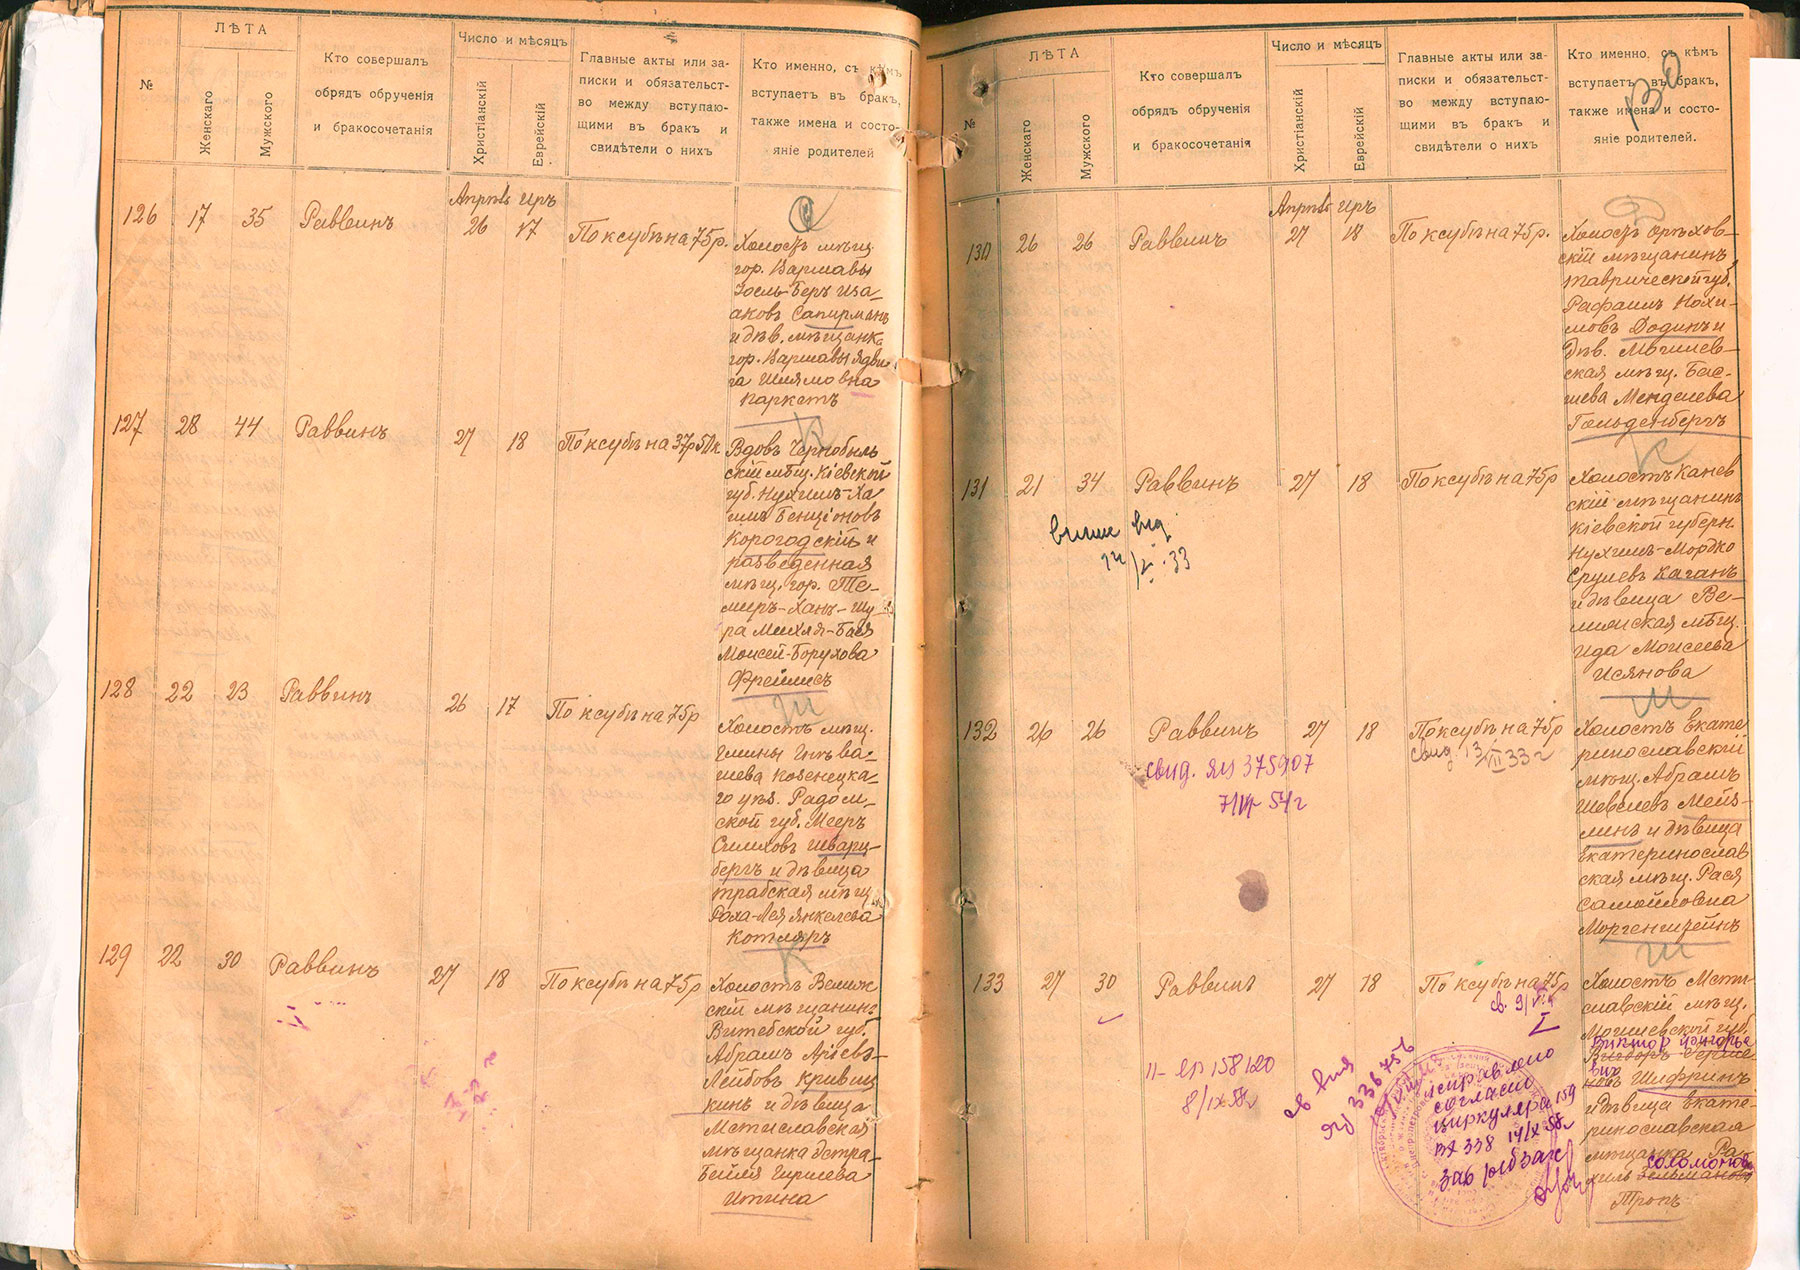 №
ЛѢТА
Женскаго
Мужского
Кто совершалъ
обрядъ обрученія
и бракосочетанія
Число и мѣсяцъ
Христіанскій
Еврейскій
Главные акты или за-
писки и обязательст-
во между вступаю-
щими въ бракъ и
свидѣтели о нихъ
Кто именно, съ кѣмъ
вступаетъ въ бракъ,
также имена и состо-
яніе родителей
126 17 35 Раввинъ
Апрѣль Иръ
26 17
По ксубѣ на 75 р.
Холостъ мѣщ.
гор. Варшавы
Іосль-Беръ Иза-
аковъ Сапирманъ
и дѣв. мѣщанк.
гор. Варшавы Ядви
га Шлямовна
Паркетъ
127 28 44 Раввинъ 27 18 По ксубѣ на 37р50к
К
Вдовъ Чернобыль
скій мѣщ. Кіевской
губ. Нухимъ-Ха
имъ Бенціоновъ
Корогодскій и
разведенная
мѣщ. гор. Те-
миръ-Ханъ-Шу
ра Михля-Бася
Моисей-Борухова
Фрейлисъ
128 22 23 Раввинъ 26 17 По ксубѣ на 75р
Ш
Холостъ мѣщ.
гмины Гнѣва-
шева Козенецка-
го уѣз. Радом-
ской губ. Мееръ
Симховъ Шварц-
бергъ и дѣвица
трабская мѣщ
Роха-Лея Янкелева
Котляръ
129 22 30 Раввинъ 27 18 По ксубѣ на 75р
К
Холостъ Велиж-
скій мѣщанинъ
Витебской губ.
Абрамъ Аріевъ-
Лейбовъ Кривиц
кинъ и дѣвица
Мстиславская
мѣщанка Эстра-
Бейля Гиршева
Итина
№
ЛѢТА
Женскаго
Мужского
Кто совершалъ
обрядъ обрученія
и бракосочетанія
Число и мѣсяцъ
Христіанскій
Еврейскій
Главные акты или за-
писки и обязательст-
во между вступаю-
щими въ бракъ и
свидѣтели о нихъ
Кто именно, съ кѣмъ
вступаетъ въ бракъ,
также имена и состо-
яніе родителей.
130
130 26 26 Раввинъ
Апрѣль Иръ
27 18
По ксубѣ на 75р.
Холостъ Орѣхов-
скій мѣщанинъ
Таврической губ.
Рафаилъ Нохи-
мовъ Додинъ и
дѣв. Могилев-
ская мѣщ. Бас-
шева Менделева
Гольденбергъ
131 21 34 Раввинъ 27 18 По ксубѣ на 75р
К
Холостъ Канев
скій мѣщанинъ
Кіевской губерн.
Нухимъ-Мордко
Срулевъ Каганъ
и дѣвица Ве-
лижская мѣщ.
Ида Моисеева
Исянова
132 26 26 Раввинъ 27 18 По ксубѣ на 75р
свид 13/VII 33 г
свид. ЯЦ 375907
54 г
М
Холостъ Екате
ринославскій
мѣщ. Абрамъ
Шевелевъ Мейз-
линъ и дѣвица
Екатеринослав
ская мѣщ. Рася
Самойловна
Моргенштейнъ
133 27 30 Раввинъ 27 18 По ксубѣ на 75р
158120
8/IX 58г
336756
исправлено
согласно
циркуляра 159
338 14/IX 58г
зав рбзаг
Ш
Холостъ Мсти-
славскій мѣщ.
Могилевской губ.
Виктор Григорье
вич
новъ Шифринъ
и дѣвица Екате-
ринославская
мѣщанка Ра-
соломонов
хиль Зельманова
Тропъ